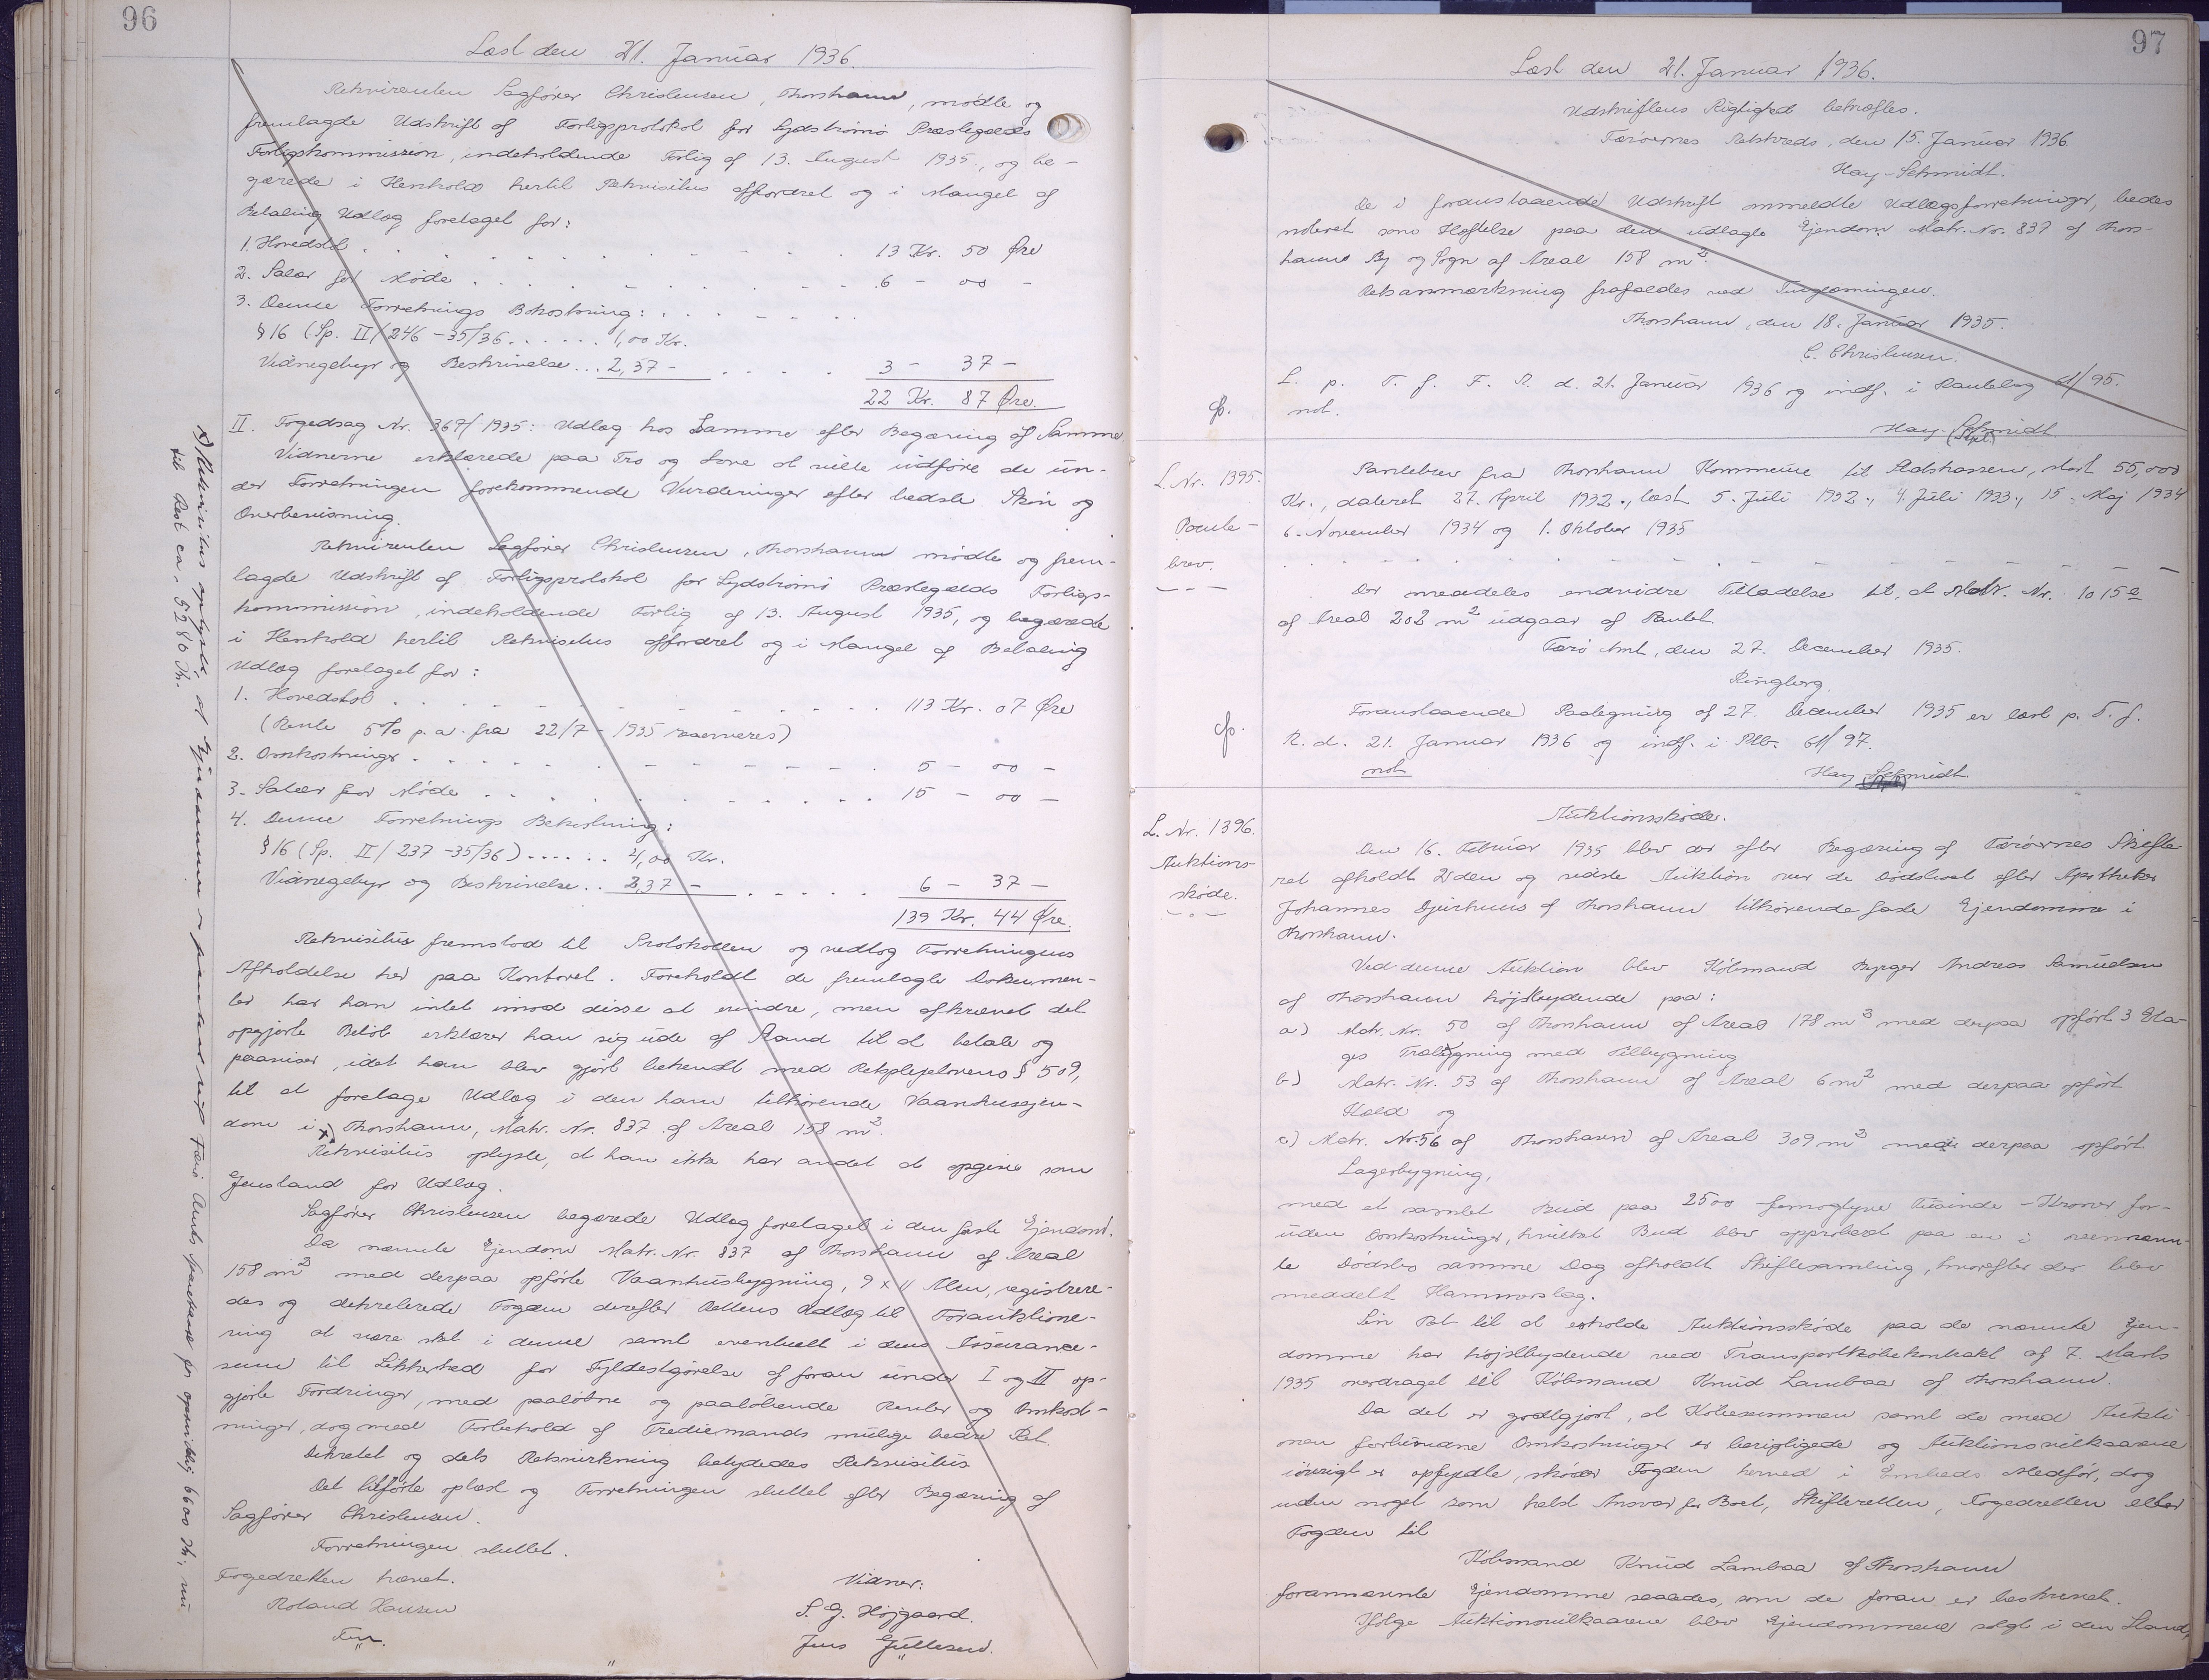 96
Læst den 21. Januar 1936.
Rekvirenten Sagfører Christensen, Thorshavn, mødte og
fremlagde Udskrift af Forligsprotokol for Sydstrømø Præstegælds
Forligskommission, indeholdende Forlig af 13. August 1935, og be-
gærede i Henhold hertil Rekvisitus affordret og i Mangel af
Betaling Udlæg foretaget for:
1. Hovedstol . . . . . . . . . 13 Kr. 50 Øre
2. Salær for Møde . . . . . . . . . 6 - 00 -
3. Denne Forretnings Bekostning: . . . . . .
§ 16 (Sp. II/246 - 35/36 . . . . . . 1,00 Kr.
Vidnegebyr og Beskrivelse . . . 2,37 - . . . . 3 - 37 -
22 Kr. 87 Øre.
II. Fogedsag Nr. 367/1935: Udlæg hos Samme efter Begæring af Samme.
Vidnerne erklærede paa Tro og Love at ville udføre de un-
der Forretningen forekommende Vurderinger efter bedste Skøn og
Overbevisning.
Rekvirenten Sagfører Christensen, Thorshavn mødte og frem-
lagde Udskrift af Forligsprotokol for Sydstrømø Præstegælds Forligs-
kommission, indeholdende Forlig af 13. August 1935, og begærede
i Henhold hertil Rekvisitus affordret og i Mangel af Betaling
Udlæg foretaget for:
1. Hovedstol . . . . . . . . . 113 Kr. 07 Øre
(Rente 5% p.a. fra 22/7 - 1935 reserveres)
2. Omkostninger . . . . . . . . . 5 - 00 -
3. Salær for Møde . . . . . . . . . 15 - 00 -
4. Denne Forretnings Bekostning:
§ 16 (Sp. II/237 - 35/36) . . . . . . 4,00 Kr.
Vidnegebyr og Beskrivelse . . 2,37 - . . . . . 6 - 37 -
139 Kr. 44 Øre.
Rekvisitus fremstod til Protokollen og vedtog Forretningens
Afholdelse her paa Kontoret. Foreholdt de fremlagte Dokumen-
ter har han intet imod disse at erindre, men afkrævet det
opgjorte Beløb erklærer han sig ude af Stand til at betale og
paaviser, idet han blev gjort bekendt med Retsplejelovens § 509,
til at foretage Udlæg i den ham tilhørende Vaanhusejen-
dom i x) Thorshavn, Matr. Nr. 837 af Areal 158 m2.
Rekvisitus oplyste, at han ikke har andet at opgive som
Genstand for Udlæg.
Sagfører Christensen begærede Udlæg foretaget i den faste Ejendom.
Da nævnte Ejendom Matr. Nr. 837 af Thorshavn af Areal
158 m2 med derpaa opførte Vaanhusbygning, 9 x 11 Alen, registrere-
des og dekreterede Fogden derefter Rettens Udlæg til Forauktione-
ring at være sket i denne samt eventuelt i dens Assurance-
sum til Sikkerhed for Fyldestgørelse af foran under I og II op-
gjorte Fordringer, med paaløbne og paaløbende Renter og Omkost-
ninger, dog med Forbehold af Trediemands mulige bedre Ret.
Dekretet og dets Retsvirkning betydedes Rekvisitus
Det tilførte oplæst og Forretningen sluttet efter Begæring af
Sagfører Christensen.
Forretningen sluttet.
Fogedretten hævet.
Roland Hansen
Fm.
Vidner:
S. J. Højgaard.
Jens Gullesen.
x) Rekvisitus oplyste, at Ejendommen er pantsat til Færø Amts Sparekasse for oprindelig 6600 Kr., nu
til Rest ca. 5280 Kr.
97
Læst den 21. Januar 1936.
Udskriftens Rigtighed bekræftes.
Færøernes Retskreds, den 15. Januar 1936.
Hay-Schmidt.
De i foranstaaende Udskrift ommeldte Udlægsforretninger, bedes
noteret som Hæftelse paa den udlagte Ejendom Matr. Nr. 837 af Thors-
havns By og Sogn af Areal 158 m2.
Retsanmærkning frafaldes ved Tinglæsningen.
Thorshavn, den 18. Januar 1935.
C. Christensen.
L. p. T. f. F. R. d. 21. Januar 1936 og indf. i Pantebog 61/95.
not.
Hay-Schmidt
(Stpl)
L. Nr. 1395.
Pante-
brev.
Pantebrev fra Thorshavn Kommune til Aldskassen, stort 55,000
Kr., dateret 27. April 1932., læst 5. Juli 1932., 4. Juli 1933., 15. Maj 1934
6. November 1934 og 1. Oktober 1935
Der meddeles endvidre Tilladelse til, at Matr. Nr. 1015a
af Areal 202 m2 udgaar af Pantet.
Færø Amt, den 27. December 1935.
Ringberg.
Foranstaaende Paategning af 27. December 1935 er læst p. T. f.
R. d. 21. Januar 1936 og indf. i Ptb. 61/97.
not
Hay Schmidt.
L. Nr. 1396.
Auktions-
skøde.
Auktionsskøde.
Den 16. Februar 1935 blev der efter Begæring af Færøernes Skifte-
ret afholdt 2den og sidste Auktion over de Dødsboet efter Apotheker
Johannes Djurhuus af Thorshavn tilhørende faste Ejendomme i
Thorshavn.
Ved denne Auktion blev Købmand Byrger Andreas Samuelsen
af Thorshavn højstbydende paa:
a) Matr. Nr. 50 af Thorshavn af Areal 178 m2 med derpaa opført 3 Eta-
ges Træbygning med Tilbygning
b) Matr. Nr. 53 af Thorshavn af Areal 6 m2 med derpaa opført
Stald og
c) Matr. Nr. 56 af Thorshavn af Areal 309 m2 med derpaa opført
Lagerbygning,
med et samlet Bud paa 2500 femogtyve Tusinde - Kroner for-
uden Omkostninger, hvilket Bud blev approberet paa en i ovennævn-
te Dødsbo samme Dag afholdt Skiftesamling, hvorefter der blev
meddelt Hammerslag.
Sin Ret til at erholde Auktionsskøde paa de nævnte Ejen-
domme har højstbydende ved Transportkøbekontrakt af 7. Marts
1935 overdraget til Købmand Knud Lambaa af Thorshavn.
Da det er godtgjort, at Købesummen samt de med Aukti-
onen forbundne Omkostninger er berigtigede og Auktionsvilkaarene
iøvrigt er opfyldte, skøder Fogden herved i Embeds Medfør, dog
uden noget som helst Ansvar for Boet, Skifteretten, Fogedretten eller
Fogden til
Købmand Knud Lambaa af Thorshavn
forannævnte Ejendomme saaledes, som de foran er beskrevet.
Ifølge Auktionsvilkaarene blev Ejendommene solgt i den Stand,